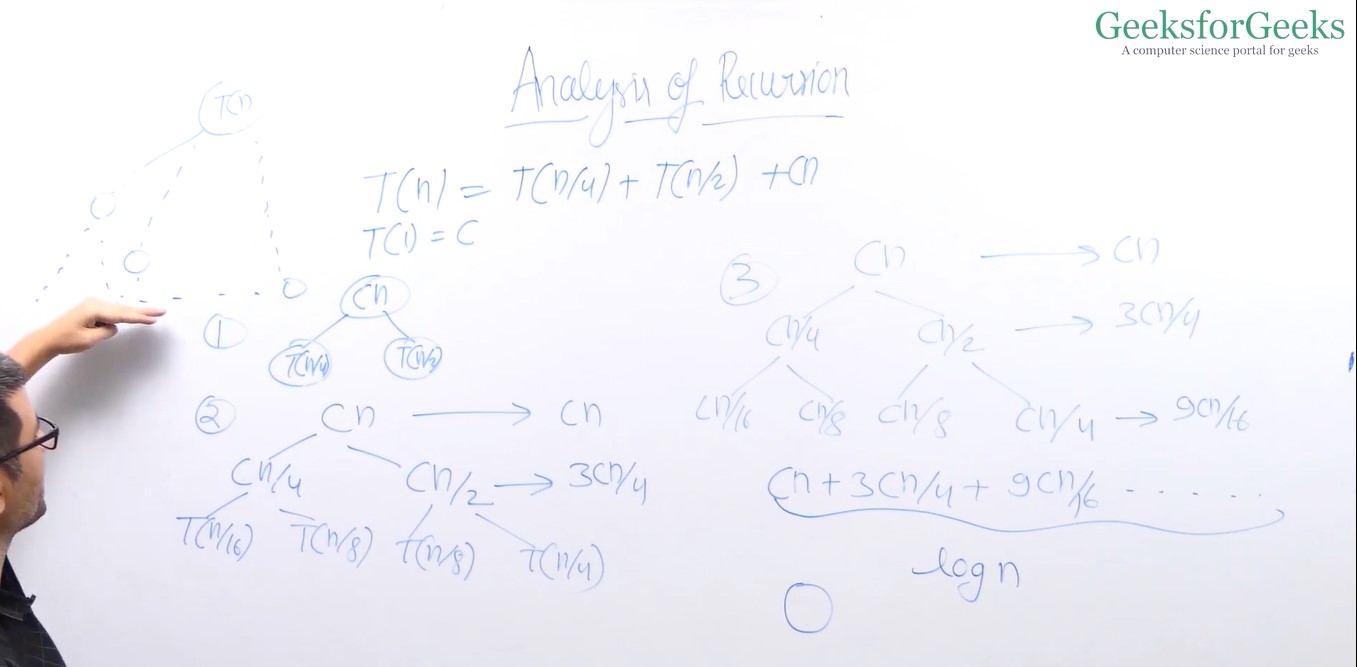 GeeksforGeeks
A computer science portal for geeks
Analysis of Recursion
T(n)
T(n) = T(n/4) + T(n/2) + Cn
T(1) = C
① Cn
T(n/4) T(n/2)
② Cn → Cn
Cn/4 Cn/2 → 3Cn/4
T(n/16) T(n/8) T(n/8) T(n/4)
③ Cn → Cn
Cn/4 Cn/2 → 3Cn/4
Cn/16 Cn/8 Cn/8 Cn/4 → 9Cn/16
Cn + 3Cn/4 + 9Cn/16 ......
log n